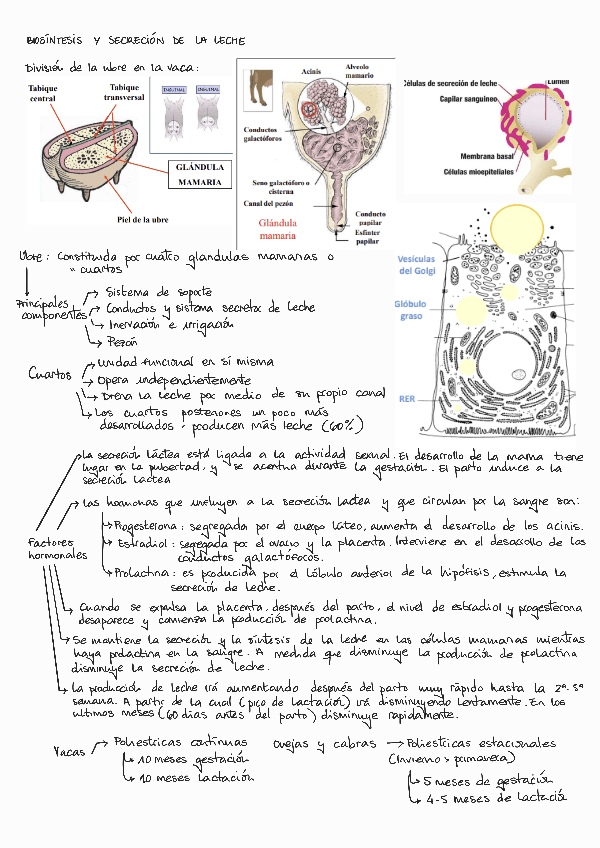 BIOSÍNTESIS Y SECRECIÓN DE LA LECHE
División de la ubre en la vaca:
Tabique central
Tabique transversal
INGUINAL
INGUINAL
GLÁNDULA MAMARIA
Piel de la ubre
Acinis
Alveolo mamario
Conductos galactóforos
Seno galactóforo o cisterna
Canal del pezón
Glándula mamaria
Conducto papilar
Esfínter papilar
Células de secreción de leche
Lumen
Capilar sanguíneo
Membrana basal
Células mioepiteliales
Vesículas del Golgi
Glóbulo graso
RER
Ubre: Constituida por cuatro glandulas mamarias o
" cuartos
Principales componentes
→ Sistema de soporte
→ Conductos y sistema secretor de leche
→ Inervación e irrigación
→ Pezón
Cuartos
→ Unidad funcional en sí misma
→ Opera independientemente
→ Drena la leche por medio de su propio canal
→ Los cuartos posteriores un poco más
desarollados : producen más leche (60%)
Factores hormonales
→ La secreción láctea está ligado a la actividad sexual. El desarrollo de la mama tiene
lugar en la pubertad, y se acentua durante la gestación. El parto induce a la
secreción lactea
→ Las hormonas que influyen a la secreción lactea y que circulan por la sangre son:
→ Progesterona: segregada por el cuerpo lúteo, aumenta el desarrollo de los acinis.
→ Estradiol: segregada por el ovario y la placenta. Interviene en el desarollo de los
conductos galactóforos.
→ Prolactina: es producida por el lóbulo anterior de la hipófisis, estimula la
secreción de leche.
→ Cuando se expulsa la placenta, después del parto, el nivel de estradiol y progesterona
desaparece y comienza la producción de prolactina.
→ Se mantiene la secreción y la síntesis de la leche en las células mamarias mientras
haya prolactina en la sangre. A medida que disminuye la producción de prolactina
disminuye la secreción de leche.
→ La producción de leche irá aumentando después del parto muy rápido hasta la 2ª-5ª
semana. A partir de la cual (pico de lactación) irá disminuyendo lentamente. En los
ultimos meses (60 días antes del parto) disminuye rapidamente.
Vacas
→ Poliestricas continuas
→ 10 meses gestación
→ 10 meses lactación
ovejas y cabras → Poliestricas estacionales
(Invierno > primavera)
→ 5 meses de gestación
→ 4-5 meses de lactación